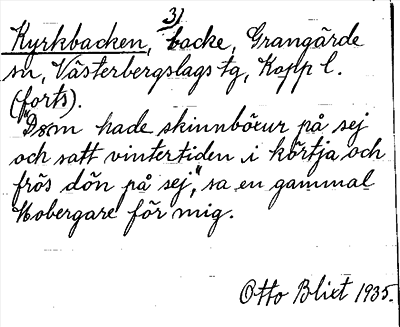 3)
Kyrkbacken, backe, Grangärde
sn, Västerbergslags tg, Kopp l.
(forts).
"Dom hade skinnböxur på sej
och satt vintertiden i körtja och
frös dön på sej", sa en gammal
Mobergare för mig.
Otto Blixt 1935.